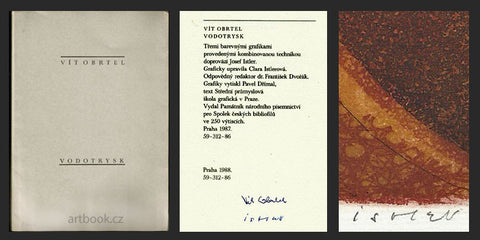 VÍT OBRTEL
VODOTRYSK
artbook.cz
VÍT OBRTEL
VODOTRYSK
Třemi barevnými grafikami
provedenými kombinovanou technikou
doprovází Josef Istler.
Graficky upravila Clara Istlerová.
Odpovědný redaktor dr. František Dvořák.
Grafiky vytiskl Pavel Dřímal,
text Střední průmyslová
škola grafická v Praze.
Vydal Památník národního písemnictví
pro Spolek českých bibliofilů
ve 250 výtiscích.
Praha 1987.
59-312-86
Praha 1988.
59-312-86
Vít Obrtel
istler
istler